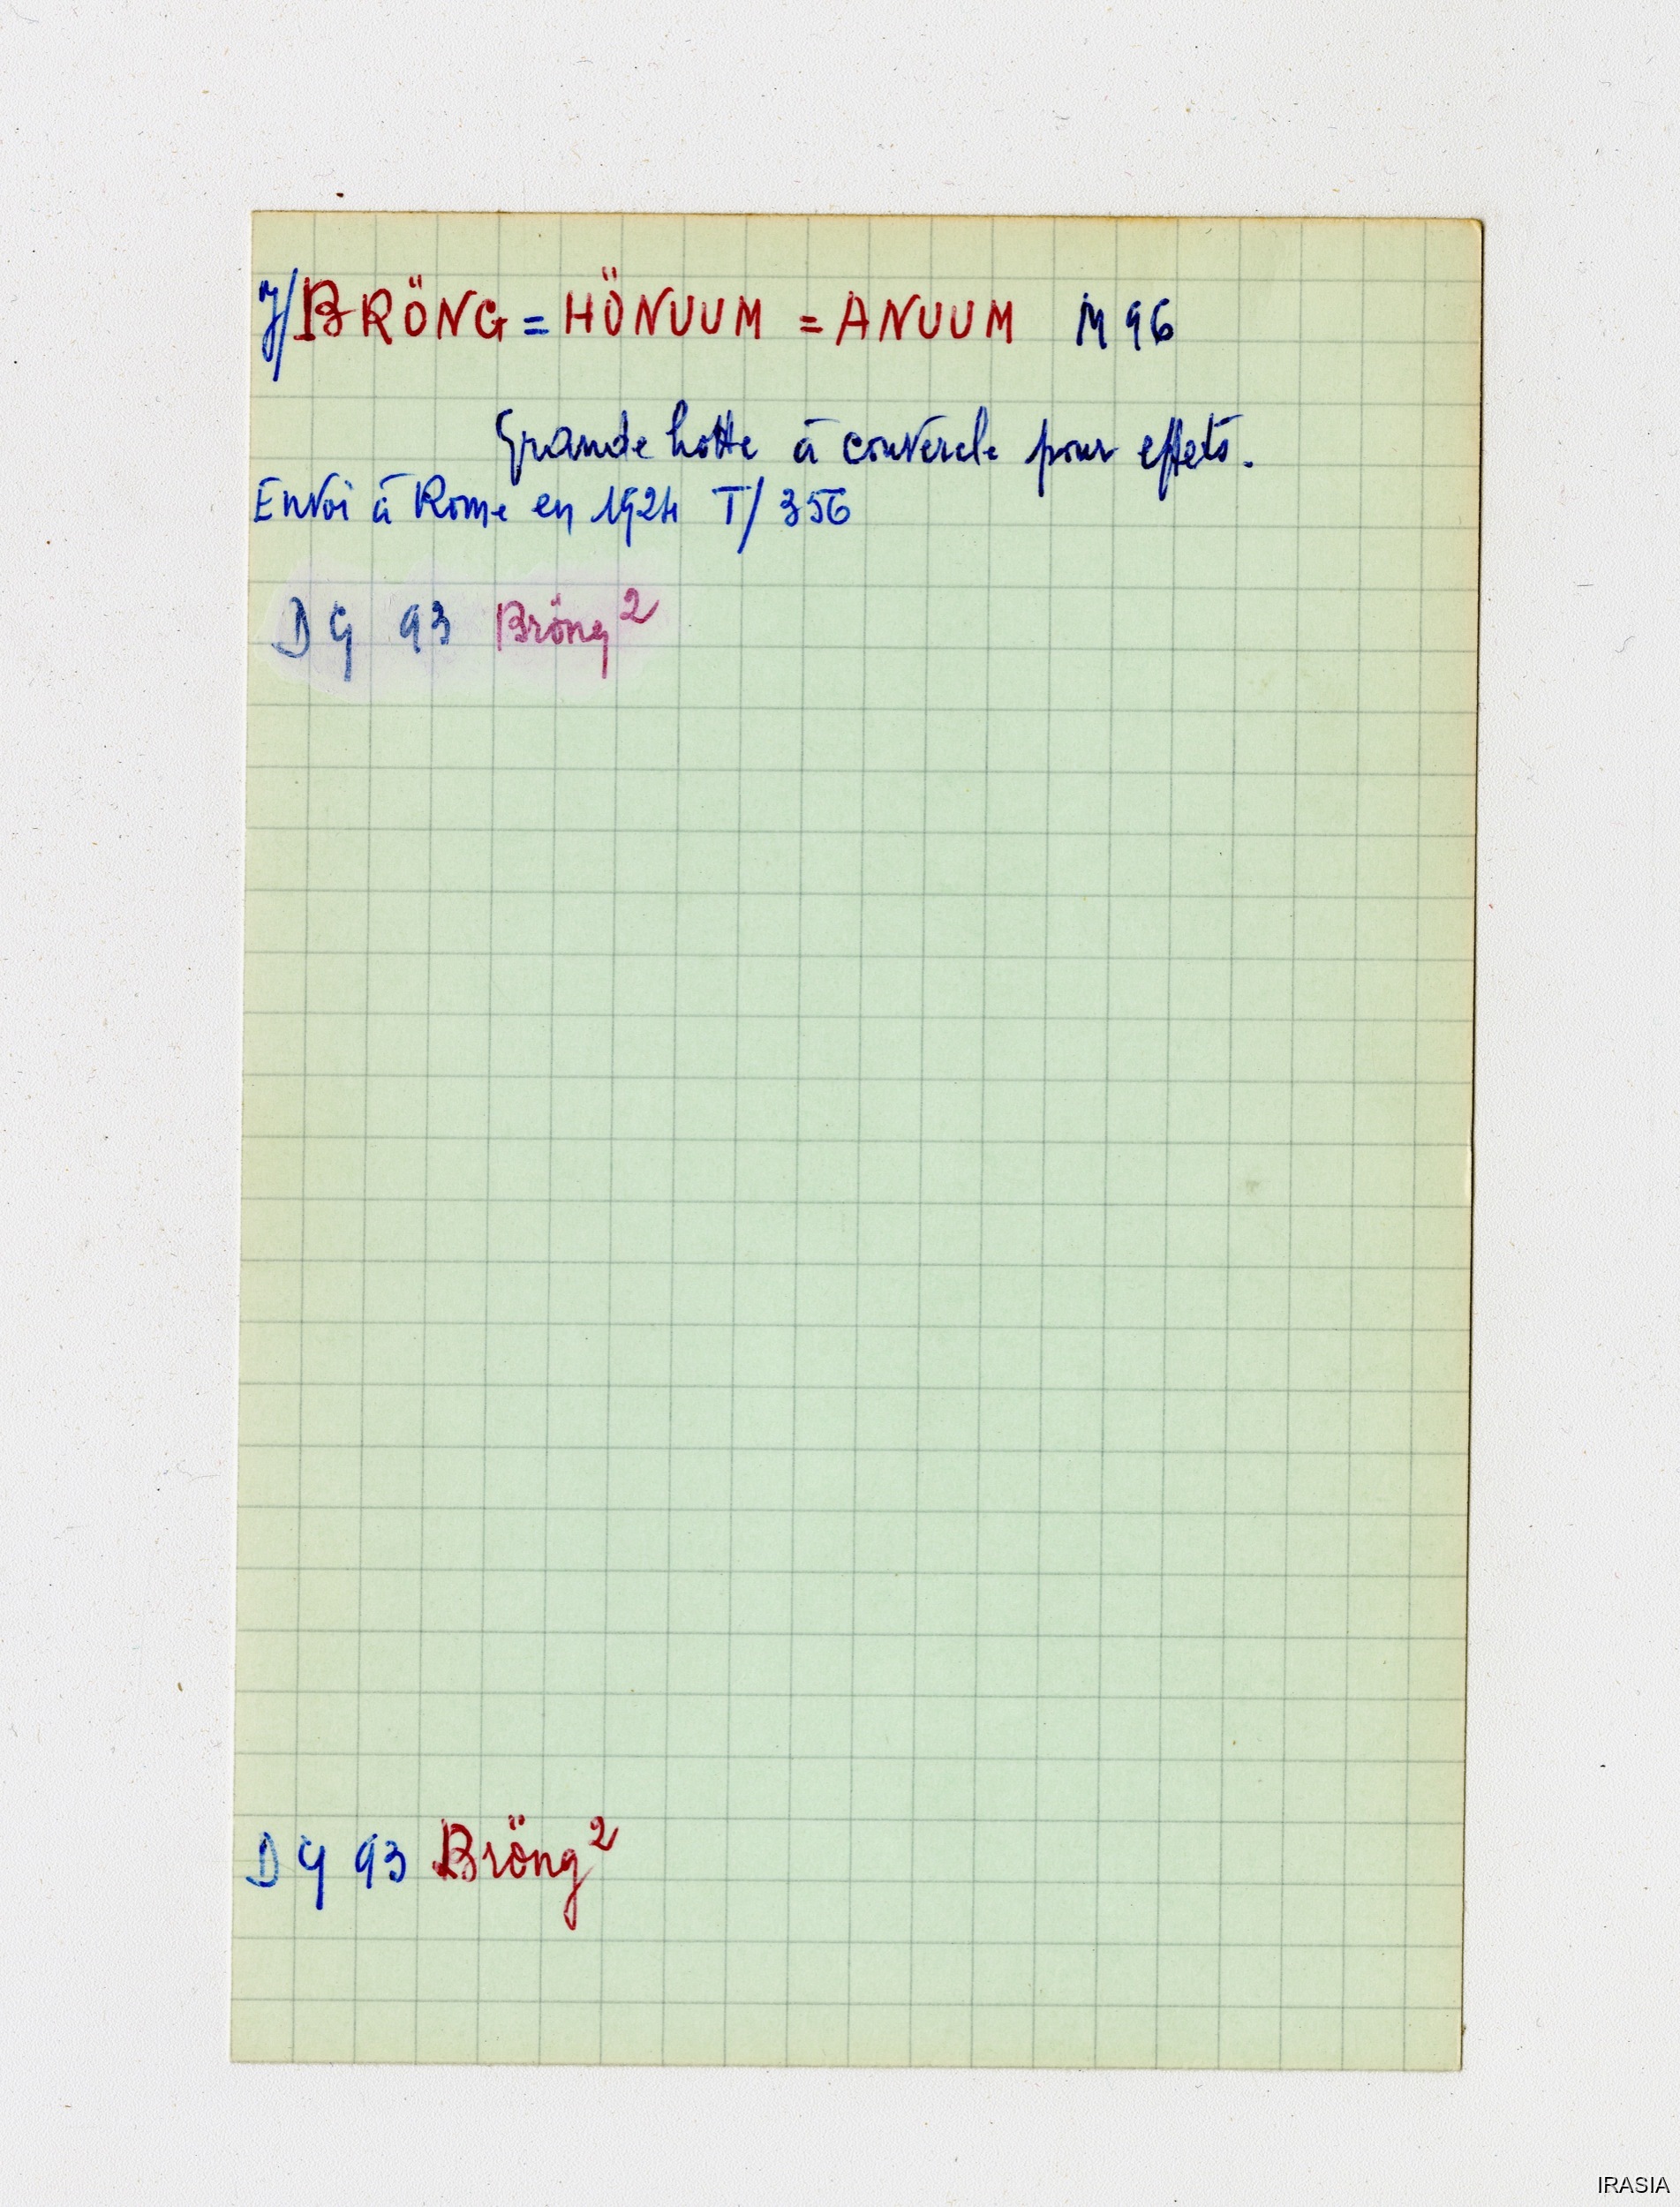 J/BRÖNG = HÖNUUM = ANUUM M 96
Grande hotte à couvercle pour effets.
Envoi à Rome en 1924 T/356
DG 93 Bröng²
DG 93 Bröng²
IRASIA